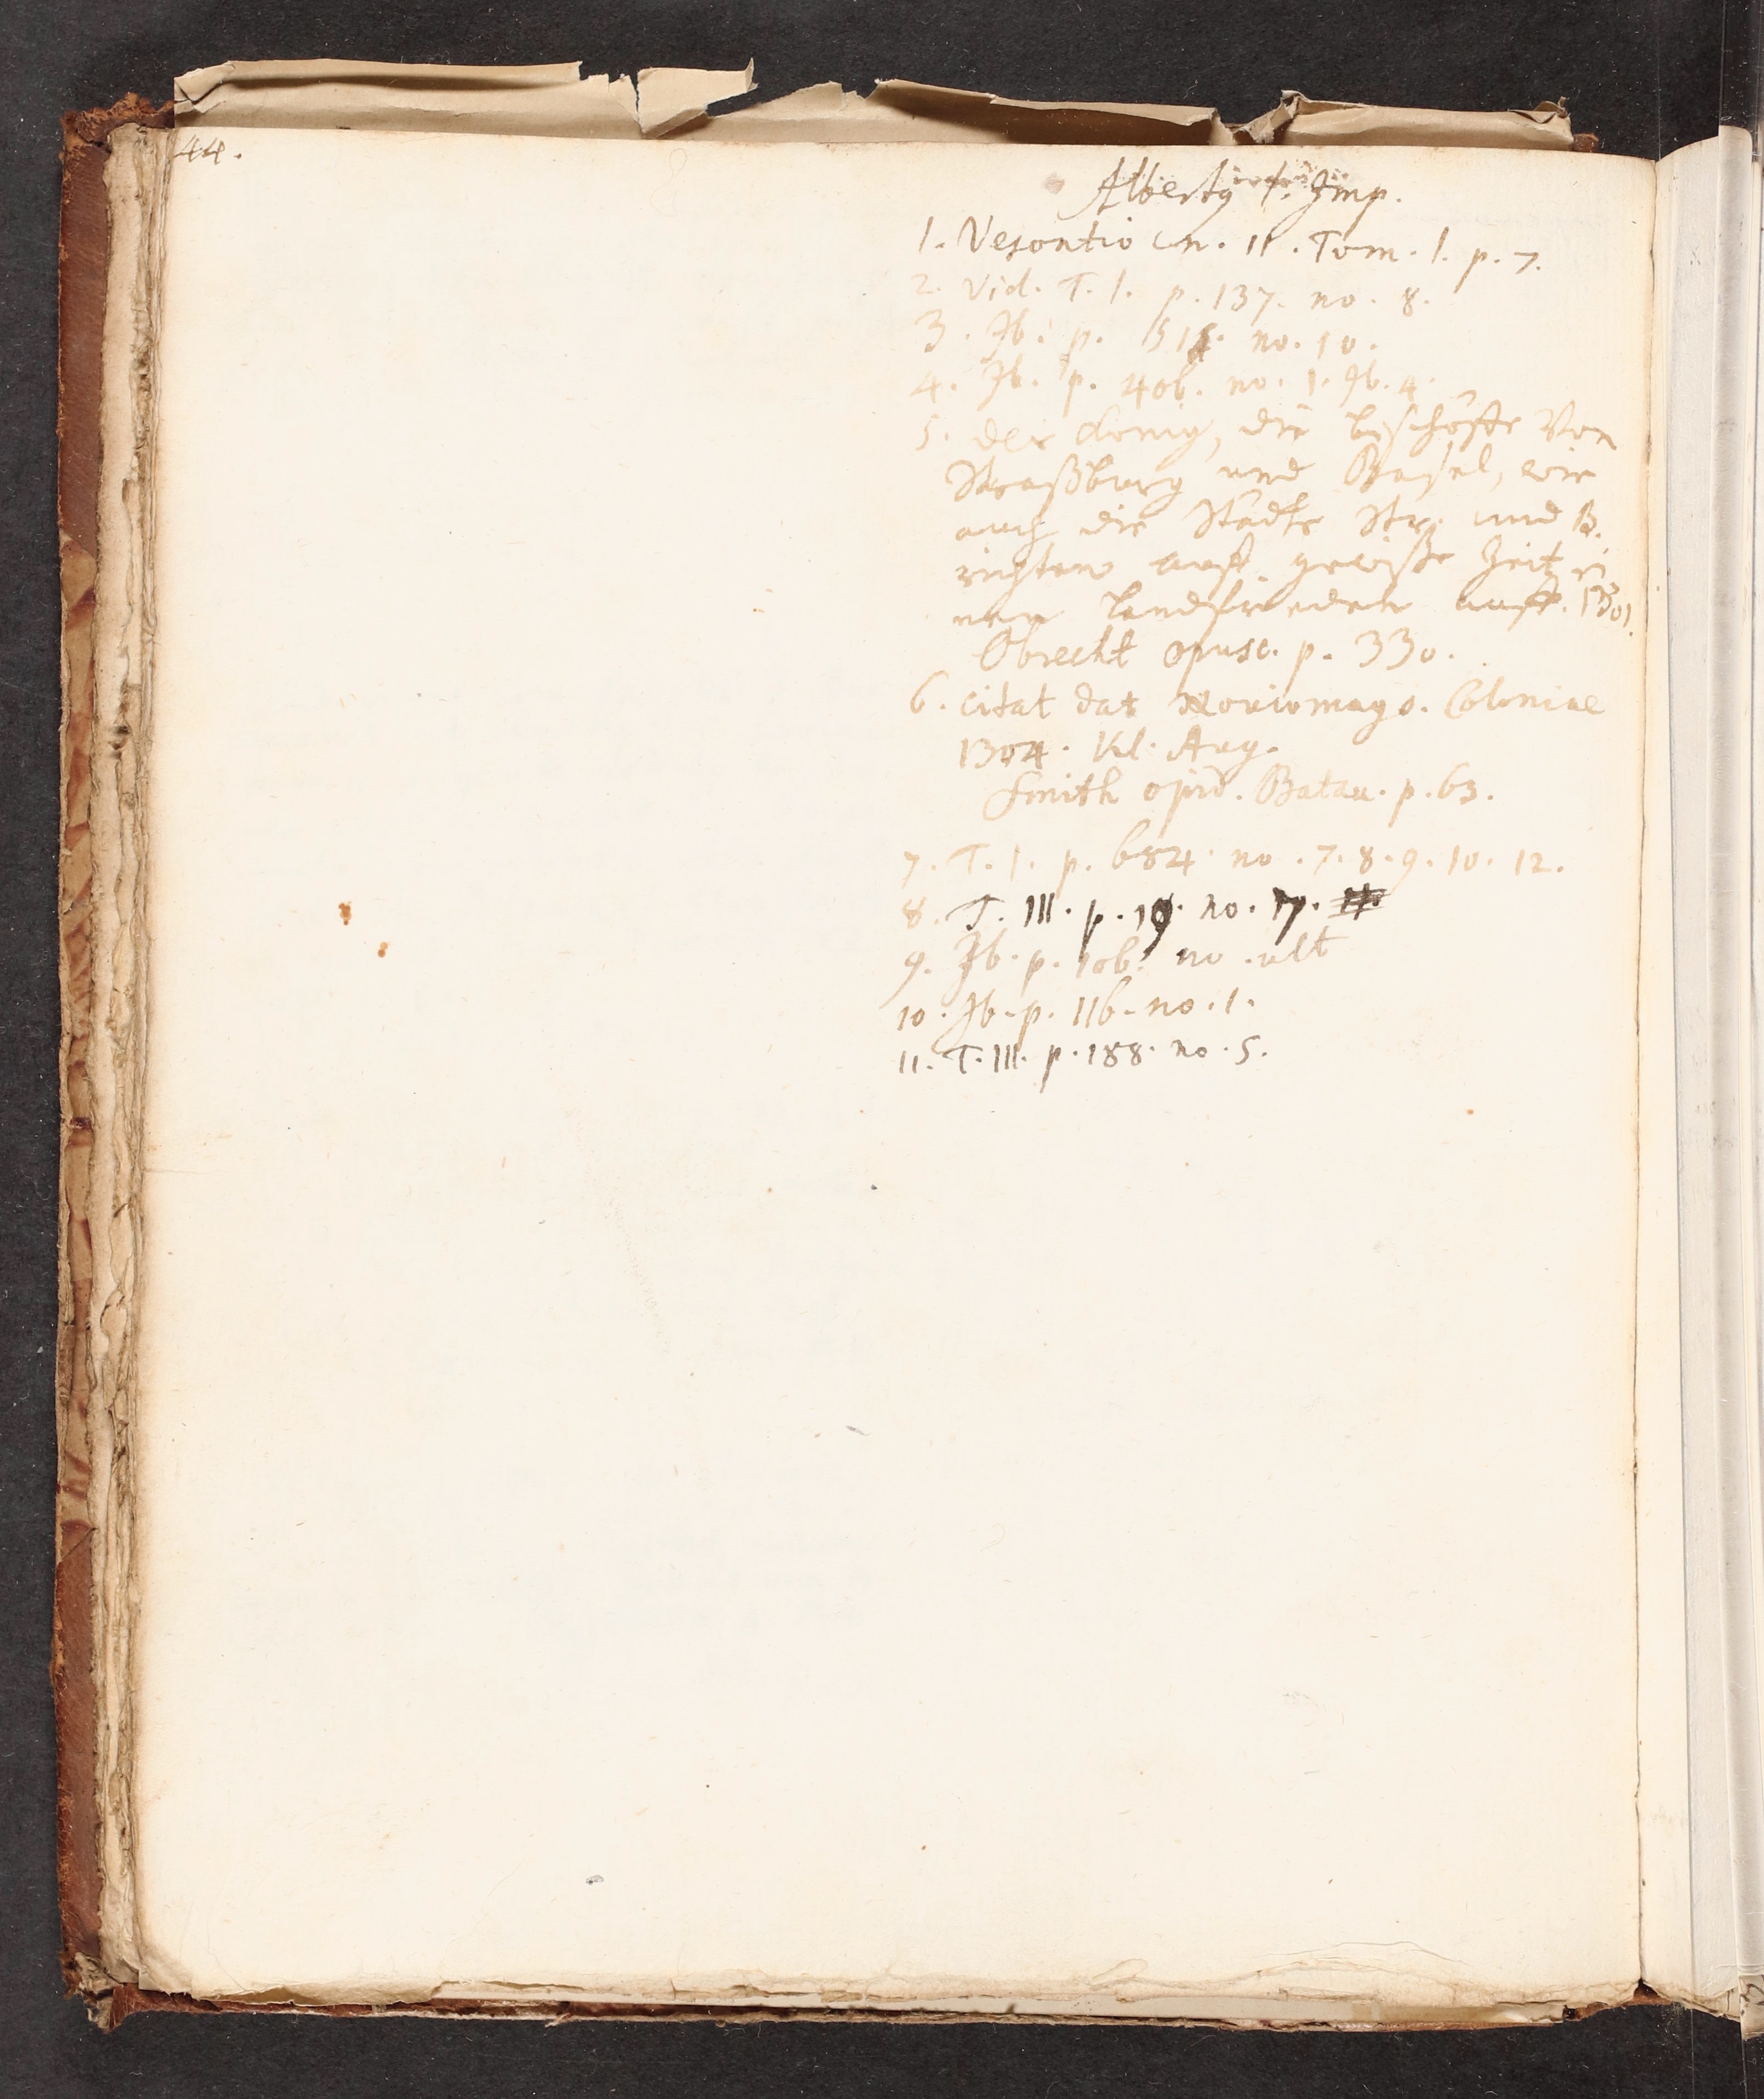 44.
Albertus I. Imp.
1. Vesontio n. 11. Tom. 1. p. 7.
2. Vid. T. 1. p. 137. no. 8.
3. Ib. p. no. 10.
4. Ib. p. 406. no. 1. Ib. 4.
5. der König, die bischöffe Von
Straßburg und Basel, wie
auch die Städte Str. und B.
richten auff gewisse Zeit ei
nen landfrieden auff. 1301.
Obrecht opusc. p. 330.
6. citat dat Noviomago. Coloniae
1304. Kl. Aug.
Smith opid. Batau. p. 63.
7. T. 1. p. 684. no. 7. 8. 9. 10. 12.
8. T. III. p. 19. no. 17.
9. Ib. p. 106. no. ult
10. Ib. p. 116. no. 1.
11. T. III. p. 188. no. 5.